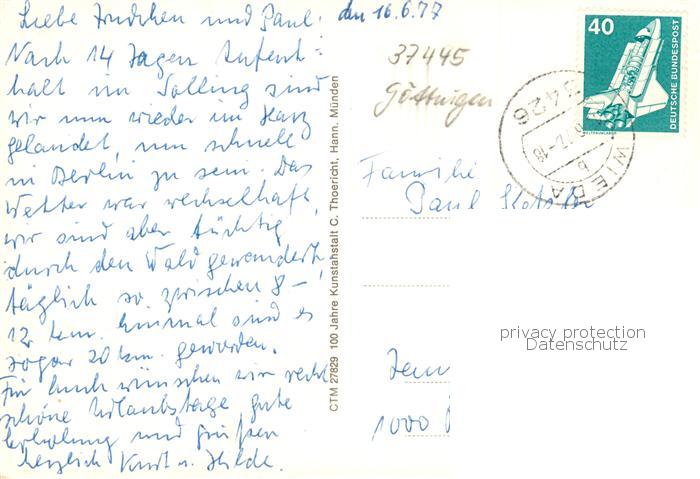 Liebe Frudchen und Paul! den 16.6.77
Nach 14 Tagen Aufent=
halt im Solling sind
wir nun wieder im Harz
gelandet, um schnell
in Berlin zu sein. Das
Wetter war wechselhaft,
wir sind aber tüchtig
durch den Wald gewandert,
täglich so zwischen 8-
12 km. Einmal sind es
sogar 20 km. geworden.
Für Euch wünschen wir recht
schöne Urlaubstage, gute
Erholung und grüßen
herzlich Kurt u. Hilde.
CTM 27829 100 Jahre Kunstanstalt C. Thoericht, Hann. Münden
37445
Göttingen
40
DEUTSCHE BUNDESPOST
WELTRAUMLABOR
3426
WIEDA
b
Familie
Paul
1000
privacy protection
Datenschutz